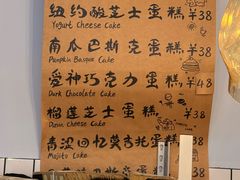 纽约酸芝士蛋糕 ¥38
Yogurt Cheese Cake
南瓜巴斯克蛋糕 ¥38
Pumpkin Basque Cake
爱神巧克力蛋糕 ¥48
Dark Chocolate Cake
榴莲芝士蛋糕 ¥38
Durian Cheese Cake
青涩回忆莫吉托蛋糕
Mojito Cake